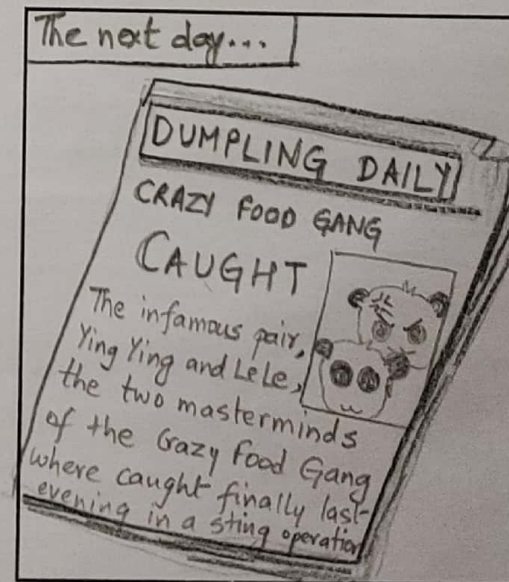 The next day...
DUMPLING DAILY
CRAZY FOOD GANG
CAUGHT
The infamous pair,
Ying Ying and LeLe,
the two masterminds
of the Crazy Food Gang
where caught finally last
evening in a sting operation